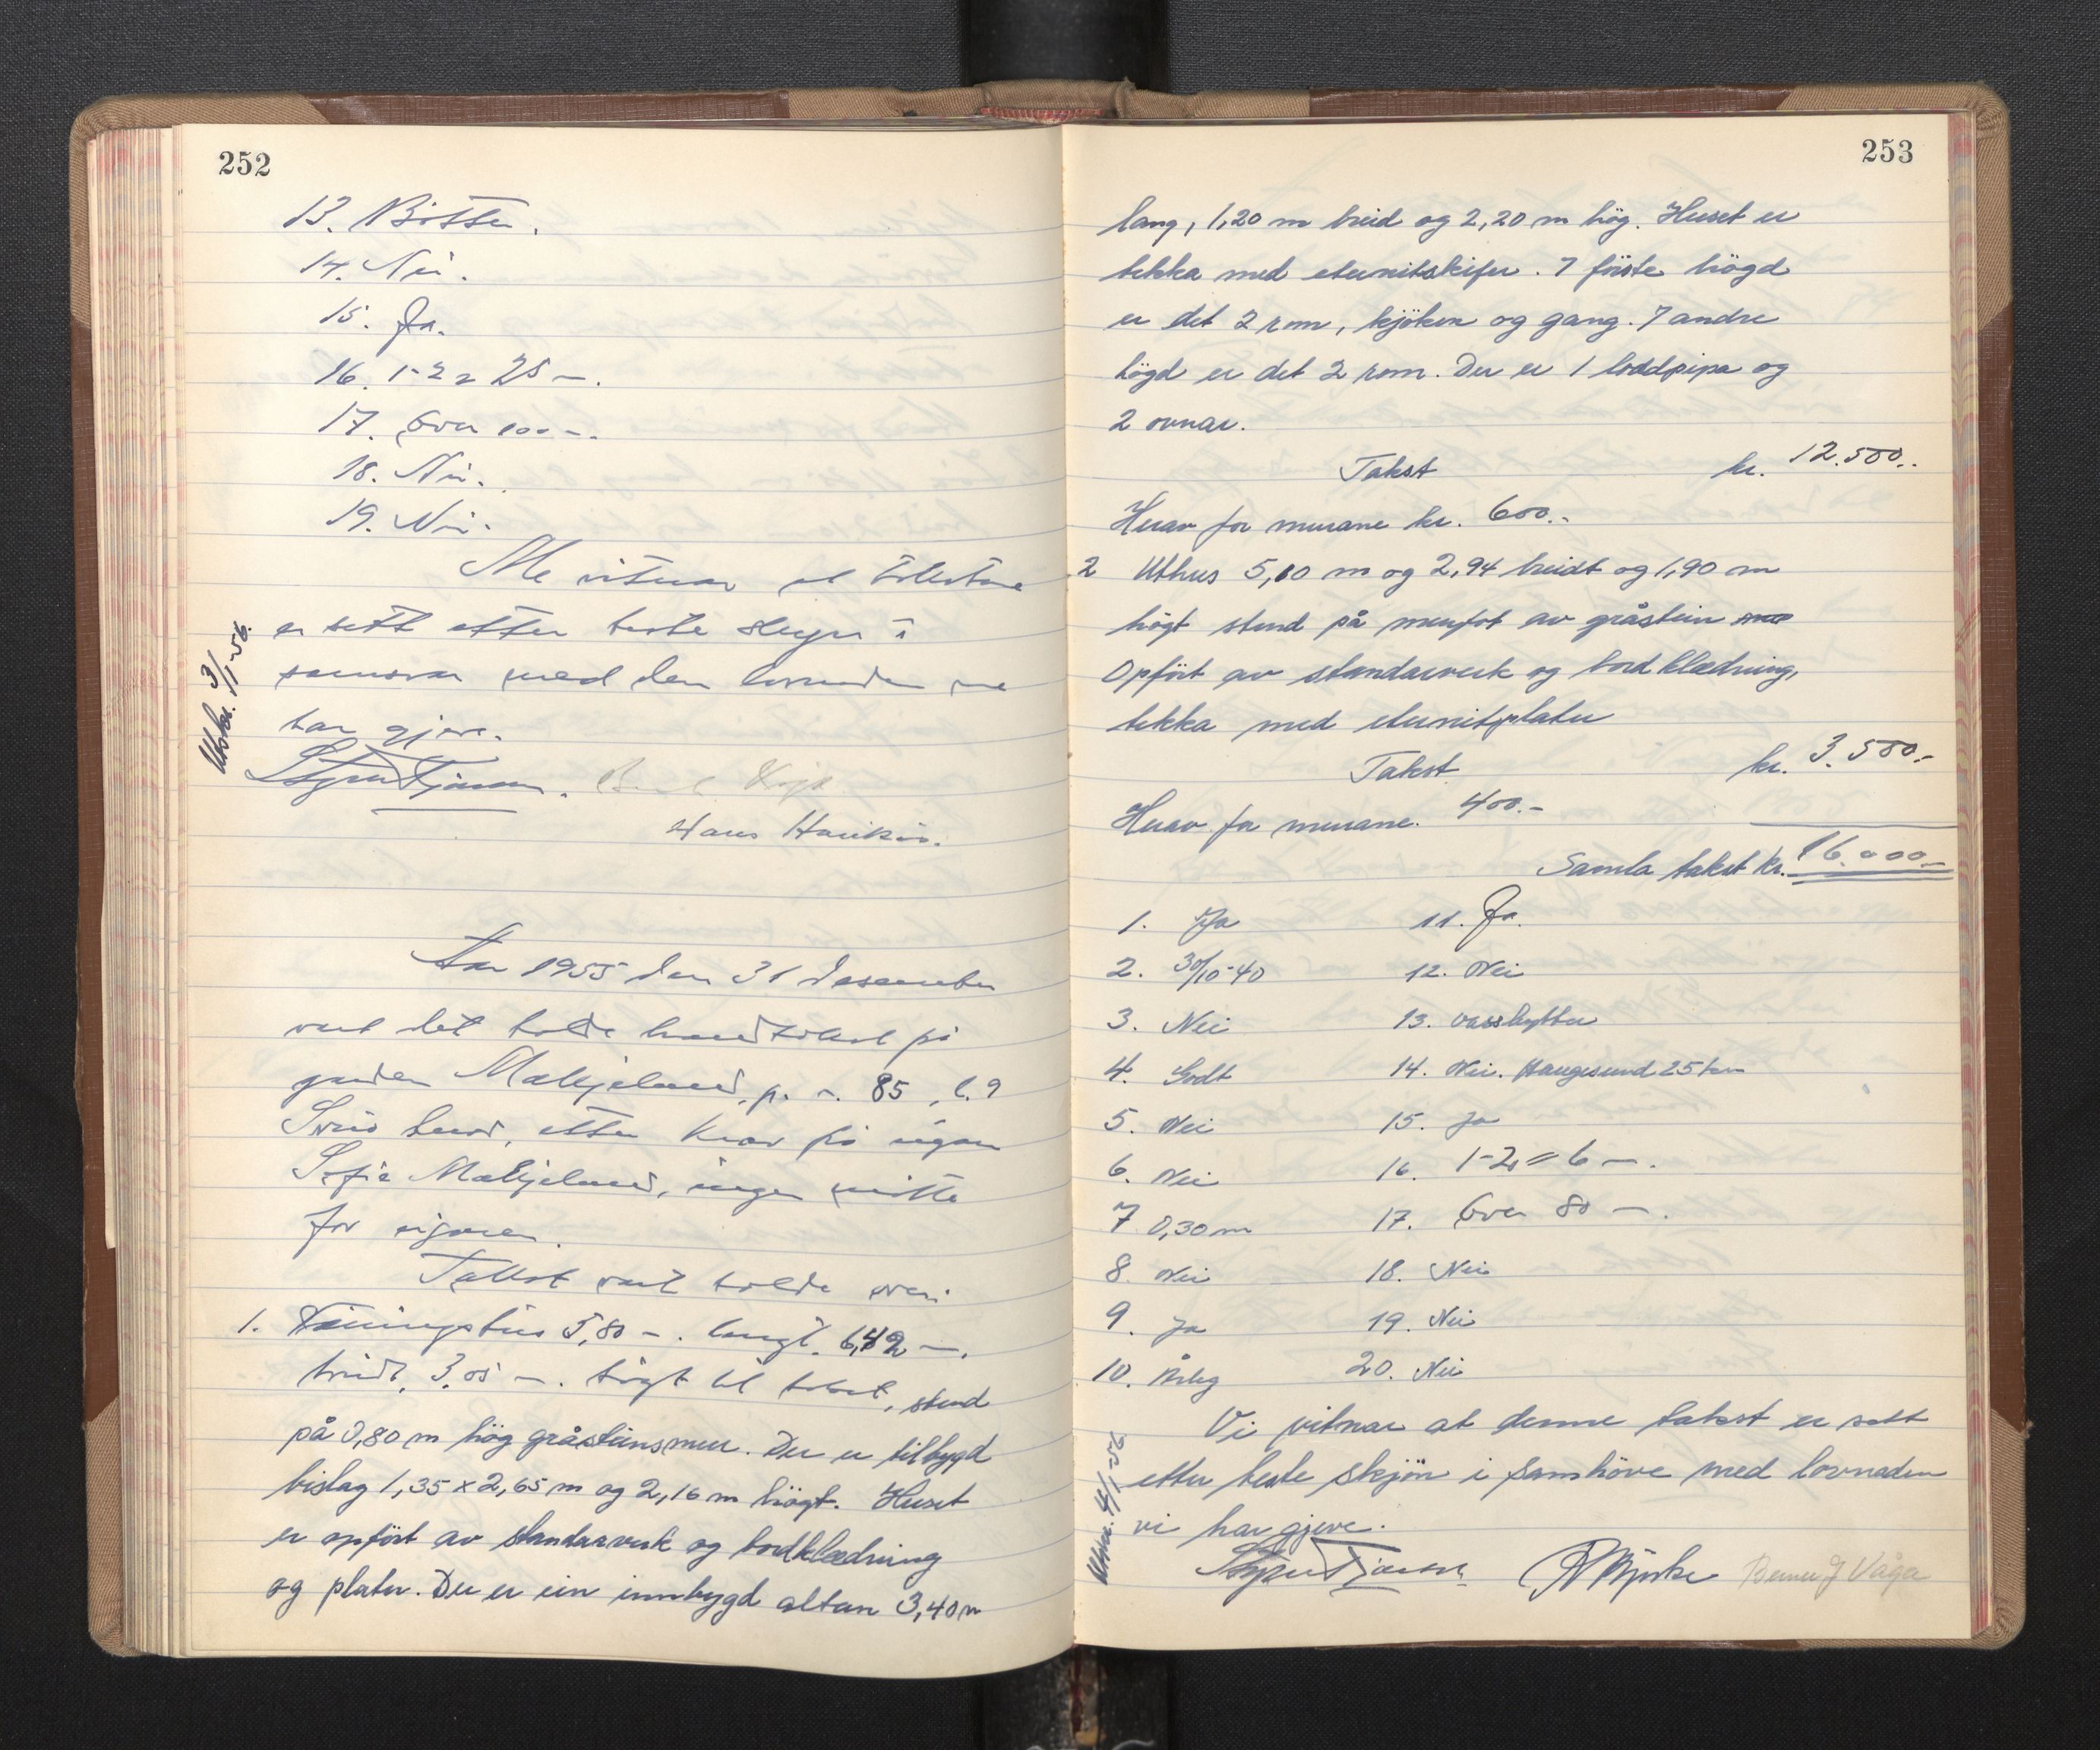 252
13. Bøtter.
14. Nei.
15. Ja.
16. 1-2 = 25 m.
17. Over 100 m.
18. Nei.
19. Nei.
Me vitnar at taksten
er sett etter beste skjøn i
samsvar med den lovnaden me
har gjeve.
Utskr. 3/1-56.
Hans Hauikås.
Aar 1955 den 31 desember
vart det halde brandtakst på
garden Mælkjeland, g. nr. 85, b. 9
Sveio herad, etter krav frå eigar
Sofie Mælkjeland, ingen møtte
for eigaren.
Takst vart halde over:
1. Våningshus 5,80 m. langt. 6,42 m.
breidt, 3.05 m. høgt til taket, stend
på 0,80 m hög gråsteinsmur. Der er tilbygd
bislag 1,35 x 2,65 m og 2,16 m högt. Huset
er opfört av standarverk og bordklædning
og plater. Der er ein innbygd altan 3,40 m
253
lang, 1,20 m breid og 2,20 m hög. Huset er
tekka med eternitskifer. I förste högd
er det 2 rom, kjöken og gang. I andre
högd er det 2 rom. Der er 1 loddpipa og
2 ovnar.
Takst kr. 12.500.-
Herav for murane kr. 600.-
2 Uthus 5,10 m og 2,94 breidt og 1,90 m
högt stend på murfot av gråstein
Opfört av standarverk og bordklædning,
tekka med eternitplater
Takst kr. 3.500.-
Herav for murane. 400.-
Samla takst kr. 16.000.-
1. Ja 11. Ja.
2. 30/10-40 12. Nei
3. Nei 13. vassbytter
4. Godt 14. Nei. Haugesund 25 km
5. Nei 15. Ja
6. Nei 16. 1-2 = 6 m.
7 0,30 m 17. Over 80 m.
8. Nei 18. Nei
9. Ja 19. Nei
10. Årleg 20. Nei
Vi vitnar at denne takst er sett
etter beste skjön i samhöve med lovnaden
vi har gjeve.
Utskr. 4/1-56
Berner J Våga